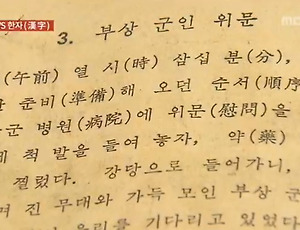 VS 한자(漢字)
mbc
3. 부상 군인 위문
(午前) 열 시(時) 삼십 분(分),
준비(準備)해 오던 순서(順序
군 병원(病院)에 위문(慰問)을
척 발을 들여 놓자, 약(藥)
찔렀다. 강당으로 들어가니,
며 진 무대와 가득 모인 부상 군
우리를 기다리고 있었다